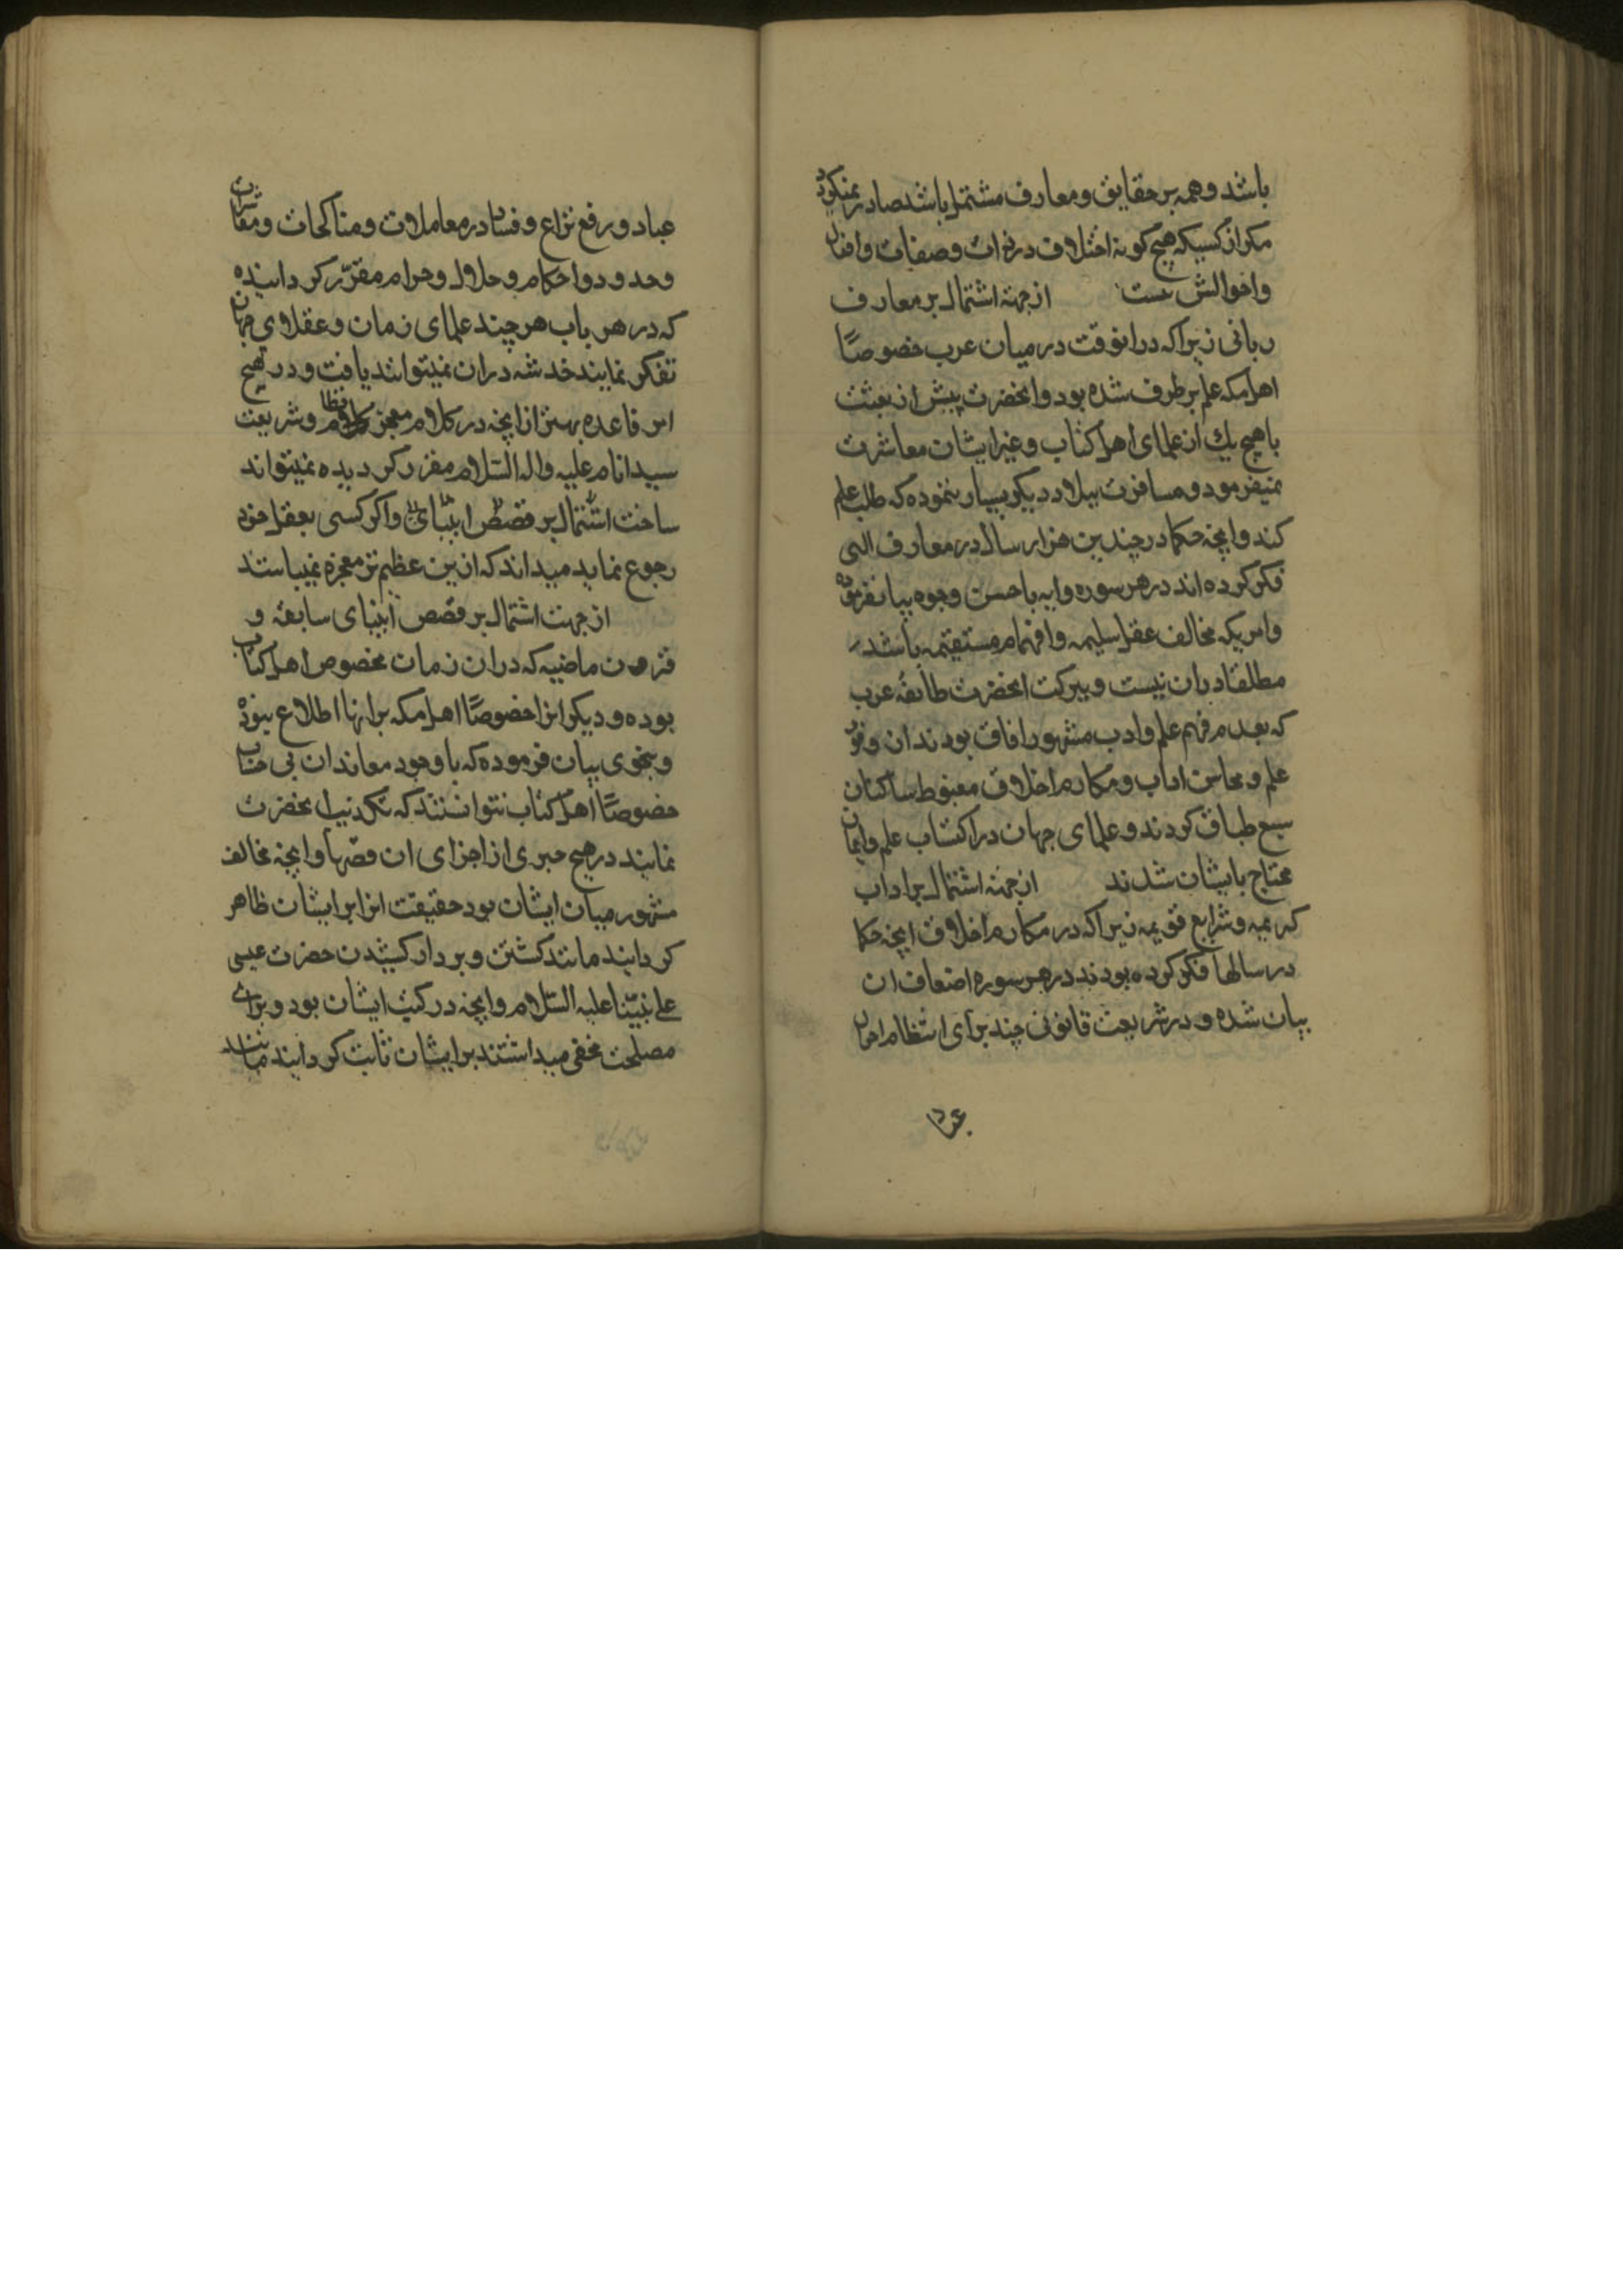 باشد و همه بر حقایق و معارف مشتمل باشد صادر نمیکردد
مکر از کسیکه هیچ کونه اختلاف در ذات و صفات و افعال
و احوالش نیست از جهة اشتمال بر معارف
ربانی زیرا که در انوقت در میان عرب خصوصًا
اهل مکه علم بر طرف شده بود و انحضرت پیش از بعثت
با هیچ یك از علمای اهل کتاب و غیر ایشان معاشرت
نمیفرمود و مسافرت ببلاد دیکر بسیار ننموده که طلب علم
کند و انچه حکما در چندین هزار سال در معارف الهی
فکر کرده اند در هر سوره و ایه باحسن وجوه بیان فرموده
و امریکه مخالف عقل سلیمه و افهام مستقیمه باشد
مطلقا در ان نیست و ببرکت انحضرت طایفۀ عرب
که بعدم فهم علم و ادب مشهور افاق بودند از وفور
علم و محاسن اداب و مکارم اخلاق مغبوط ساکنان
سبع طباق کردند و علمای جهان در اکتساب علم و ایمان
محتاج بایشان شدند از جهة اشتمال بر اداب
کریمه و شرایع قویمه زیرا که در مکارم اخلاق انچه حکما
در سالها فکر کرده بودند در هر سوره اضعاف ان
بیان شده و در شریعت قانونی چند برای انتظام احوال
عباد
عباد و رفع نزاع و فساد در معاملات و مناکحات و معاشرات
و حدود و احکام و حلال و حرام مقرّر کردانیده
که در هر باب هر چند علمای زمان و عقلای جهان
تفکر نمایند خدشه در ان نمیتوانند یافت و در هیچ
امر قاعده بهتر از انچه در کلام معجز نظام و شریعت
سید انام علیه واله السّلام مقرر کردیده نمیتواند
ساخت اشتمال بر قصص انبیای و اکر کسی بعقل خود
رجوع نماید میداند که ازین عظیم تر معجزه نمیباشد
از جهت اشتمال بر قصص انبیای سابقه و
قرون ماضیه که در ان زمان مخصوص اهل کتاب
بوده و دیکرانرا خصوصًا اهل مکه بر انها اطلاع نبوده
و بنحوی بیان فرموده که با وجود معاندان بی حساب
خصوصًا اهل کتاب نتوانستند که تکذیب انحضرت
نمایند در هیچ جزوی از اجزای ان قصّها و انچه مخالف
مشهور میان ایشان بود حقیقت انرا بر ایشان ظاهر
کردانید مانند کشتن و بر دار کشیدن حضرت عیسی
علی نبیّنا علیه السّلام و انچه در کتب ایشان بود و برای
مصلحت مخفی میداشتند بر ایشان ثابت کردانید مانند